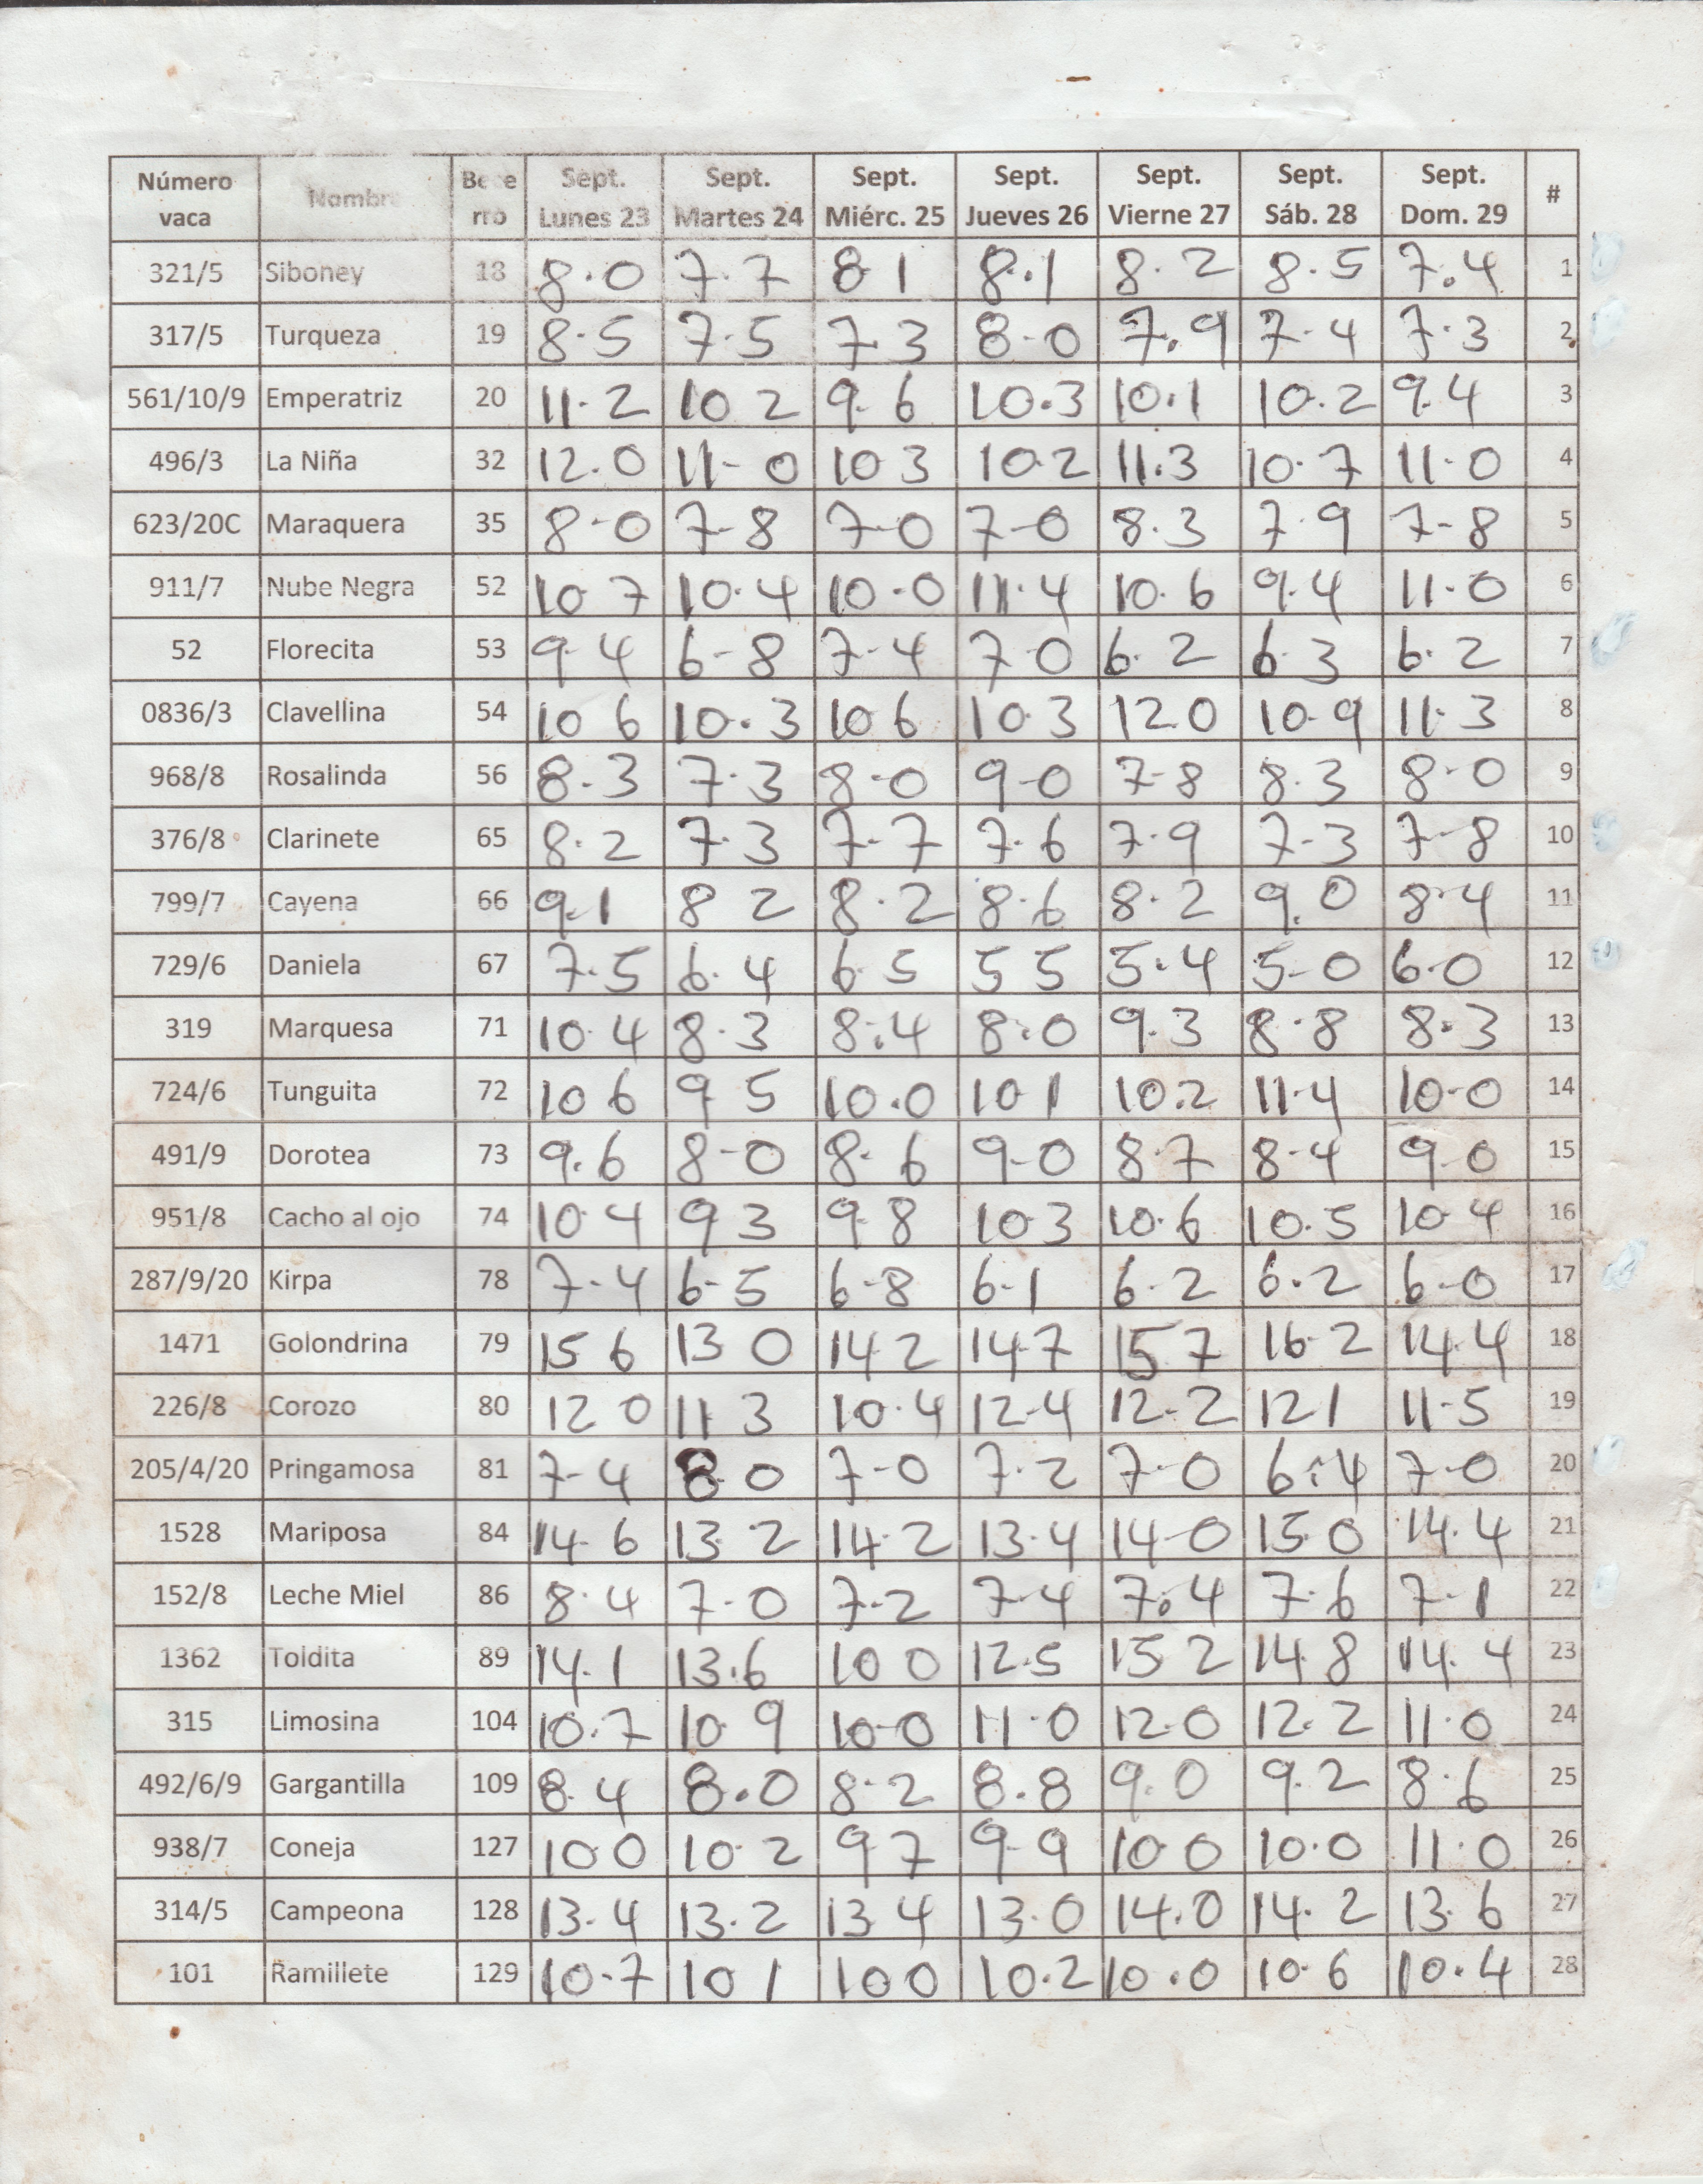 Número vaca Nombre Bece rro Sept. Lunes 23 Sept. Martes 24 Sept. Miérc. 25 Sept. Jueves 26 Sept. Vierne 27 Sept. Sáb. 28 Sept. Dom. 29 #
321/5 Siboney 18 8.0 7.7 8 1 8.1 8.2 8.5 7.4 1
317/5 Turqueza 19 8.5 7.5 7 3 8-0 7.9 7-4 7.3 2
561/10/9 Emperatriz 20 11.2 10 2 9.6 10.3 10.1 10.2 9.4 3
496/3 La Niña 32 12.0 11-0 10 3 10.2 11.3 10.7 11.0 4
623/20C Maraquera 35 8-0 7-8 7-0 7-0 8.3 7.9 7-8 5
911/7 Nube Negra 52 10 7 10.4 10.0 11.4 10.6 9.4 11.0 6
52 Florecita 53 9-4 6-8 7-4 7 0 6.2 6.3 6.2 7
0836/3 Clavellina 54 10 6 10.3 10 6 10.3 12 0 10.9 11.3 8
968/8 Rosalinda 56 8.3 7.3 8-0 9-0 7-8 8.3 8-0 9
376/8 Clarinete 65 8.2 7.3 7-7 7.6 7.9 7-3 7-8 10
799/7 Cayena 66 9.1 8 2 8.2 8.6 8.2 9.0 8.4 11
729/6 Daniela 67 7.5 6.4 6 5 5 5 5.4 5-0 6.0 12
319 Marquesa 71 10.4 8.3 8.4 8.0 9.3 8.8 8.3 13
724/6 Tunguita 72 10 6 9 5 10.0 10 1 10.2 11.4 10-0 14
491/9 Dorotea 73 9.6 8-0 8.6 9-0 8.7 8-4 9.0 15
951/8 Cacho al ojo 74 10.4 9 3 9 8 10 3 10.6 10.5 10 4 16
287/9/20 Kirpa 78 7-4 6-5 6-8 6-1 6.2 6.2 6-0 17
1471 Golondrina 79 15 6 13 0 14 2 14.7 15 7 16.2 14.4 18
226/8 Corozo 80 12 0 11 3 10.4 12-4 12-2 12 1 11-5 19
205/4/20 Pringamosa 81 7-4 8 0 7-0 7.2 7-0 6.4 7-0 20
1528 Mariposa 84 14.6 13.2 14.2 13.4 14-0 15.0 14.4 21
152/8 Leche Miel 86 8.4 7-0 7-2 7-4 7.4 7.6 7.1 22
1362 Toldita 89 14.1 13.6 10 0 12.5 15 2 14 8 14.4 23
315 Limosina 104 10.7 10 9 10-0 11.0 12.0 12.2 11.0 24
492/6/9 Gargantilla 109 8.4 8.0 8.2 8.8 9.0 9.2 8.6 25
938/7 Coneja 127 10 0 10.2 9 7 9-9 10 0 10.0 11.0 26
314/5 Campeona 128 13.4 13.2 13 4 13.0 14.0 14.2 13.6 27
101 Ramillete 129 10.7 10 1 10 0 10.2 10.0 10.6 10.4 28